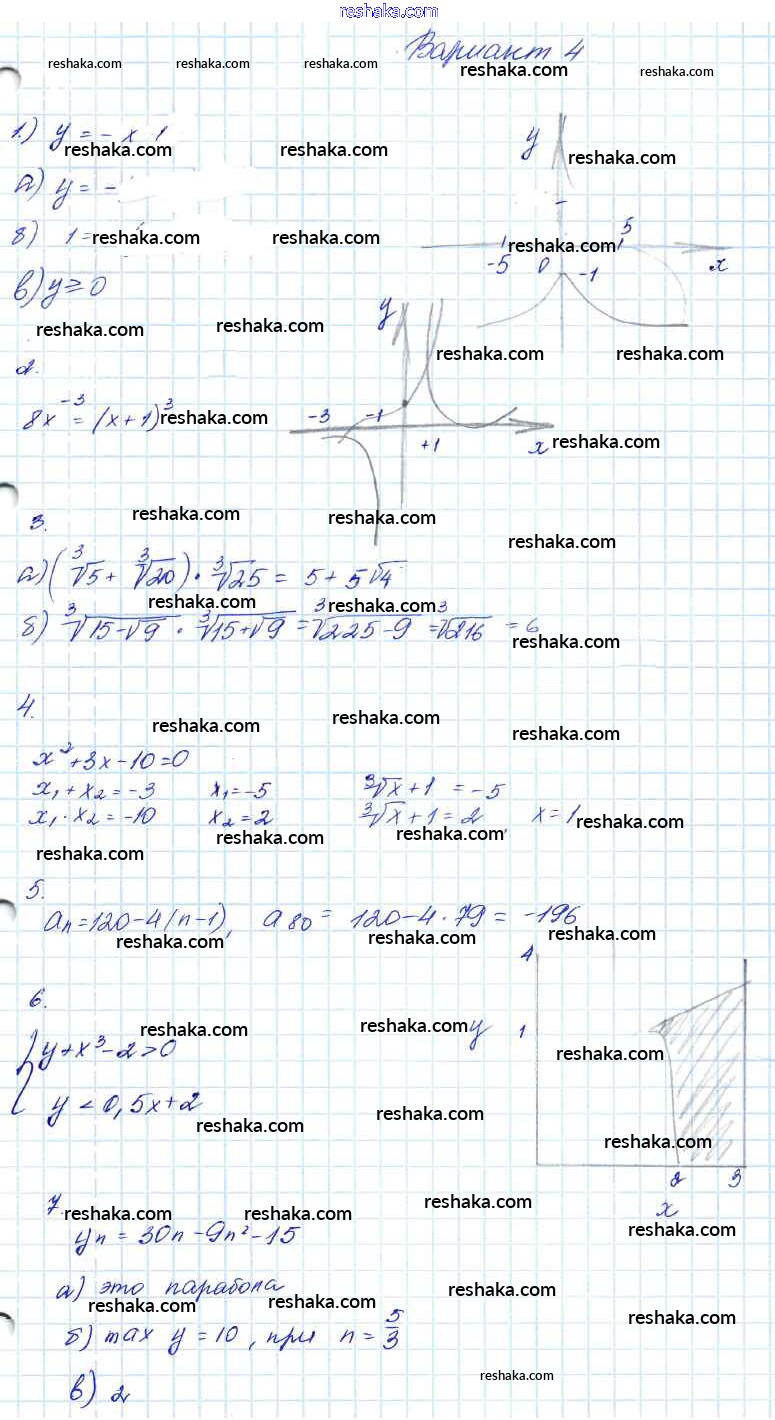 reshaka.com
Вариант 4
reshaka.com reshaka.com reshaka.com reshaka.com reshaka.com
1.) y = - x 1
y
reshaka.com reshaka.com reshaka.com
а) y = -
5
б) 1= reshaka.com reshaka.com reshaka.com
-5 0 -1 x
в) y ≥ 0
y
reshaka.com reshaka.com reshaka.com reshaka.com
2.
8x⁻³ = (x+1)³ reshaka.com
-3 -1 +1 x reshaka.com
reshaka.com reshaka.com
3.
а) (∛5 + ∛20) · ∛25 = 5 + 5∛4
reshaka.com reshaka.com
б) ∛(15-√9) · ∛(15+√9) = ∛(225-9) = ∛216 = 6
reshaka.com
4.
reshaka.com reshaka.com reshaka.com
x² + 3x - 10 = 0
x₁ + x₂ = -3 x₁ = -5 ∛x + 1 = -5
x₁ · x₂ = -10 x₂ = 2 ∛x + 1 = 2, x = 1 reshaka.com
reshaka.com reshaka.com reshaka.com
5.
aₙ = 120 - 4(n-1), a₈₀ = 120 - 4 · 79 = -196
reshaka.com reshaka.com reshaka.com
4
6.
reshaka.com reshaka.com y 1
y + x³ - 2 > 0
reshaka.com
y < 0,5x + 2
reshaka.com reshaka.com reshaka.com
2 3
x
7. reshaka.com reshaka.com reshaka.com reshaka.com
yn = 30n - 9n² - 15
а) это парабола
reshaka.com reshaka.com reshaka.com reshaka.com
б) max y = 10, при n = 5/3
в) 2
reshaka.com